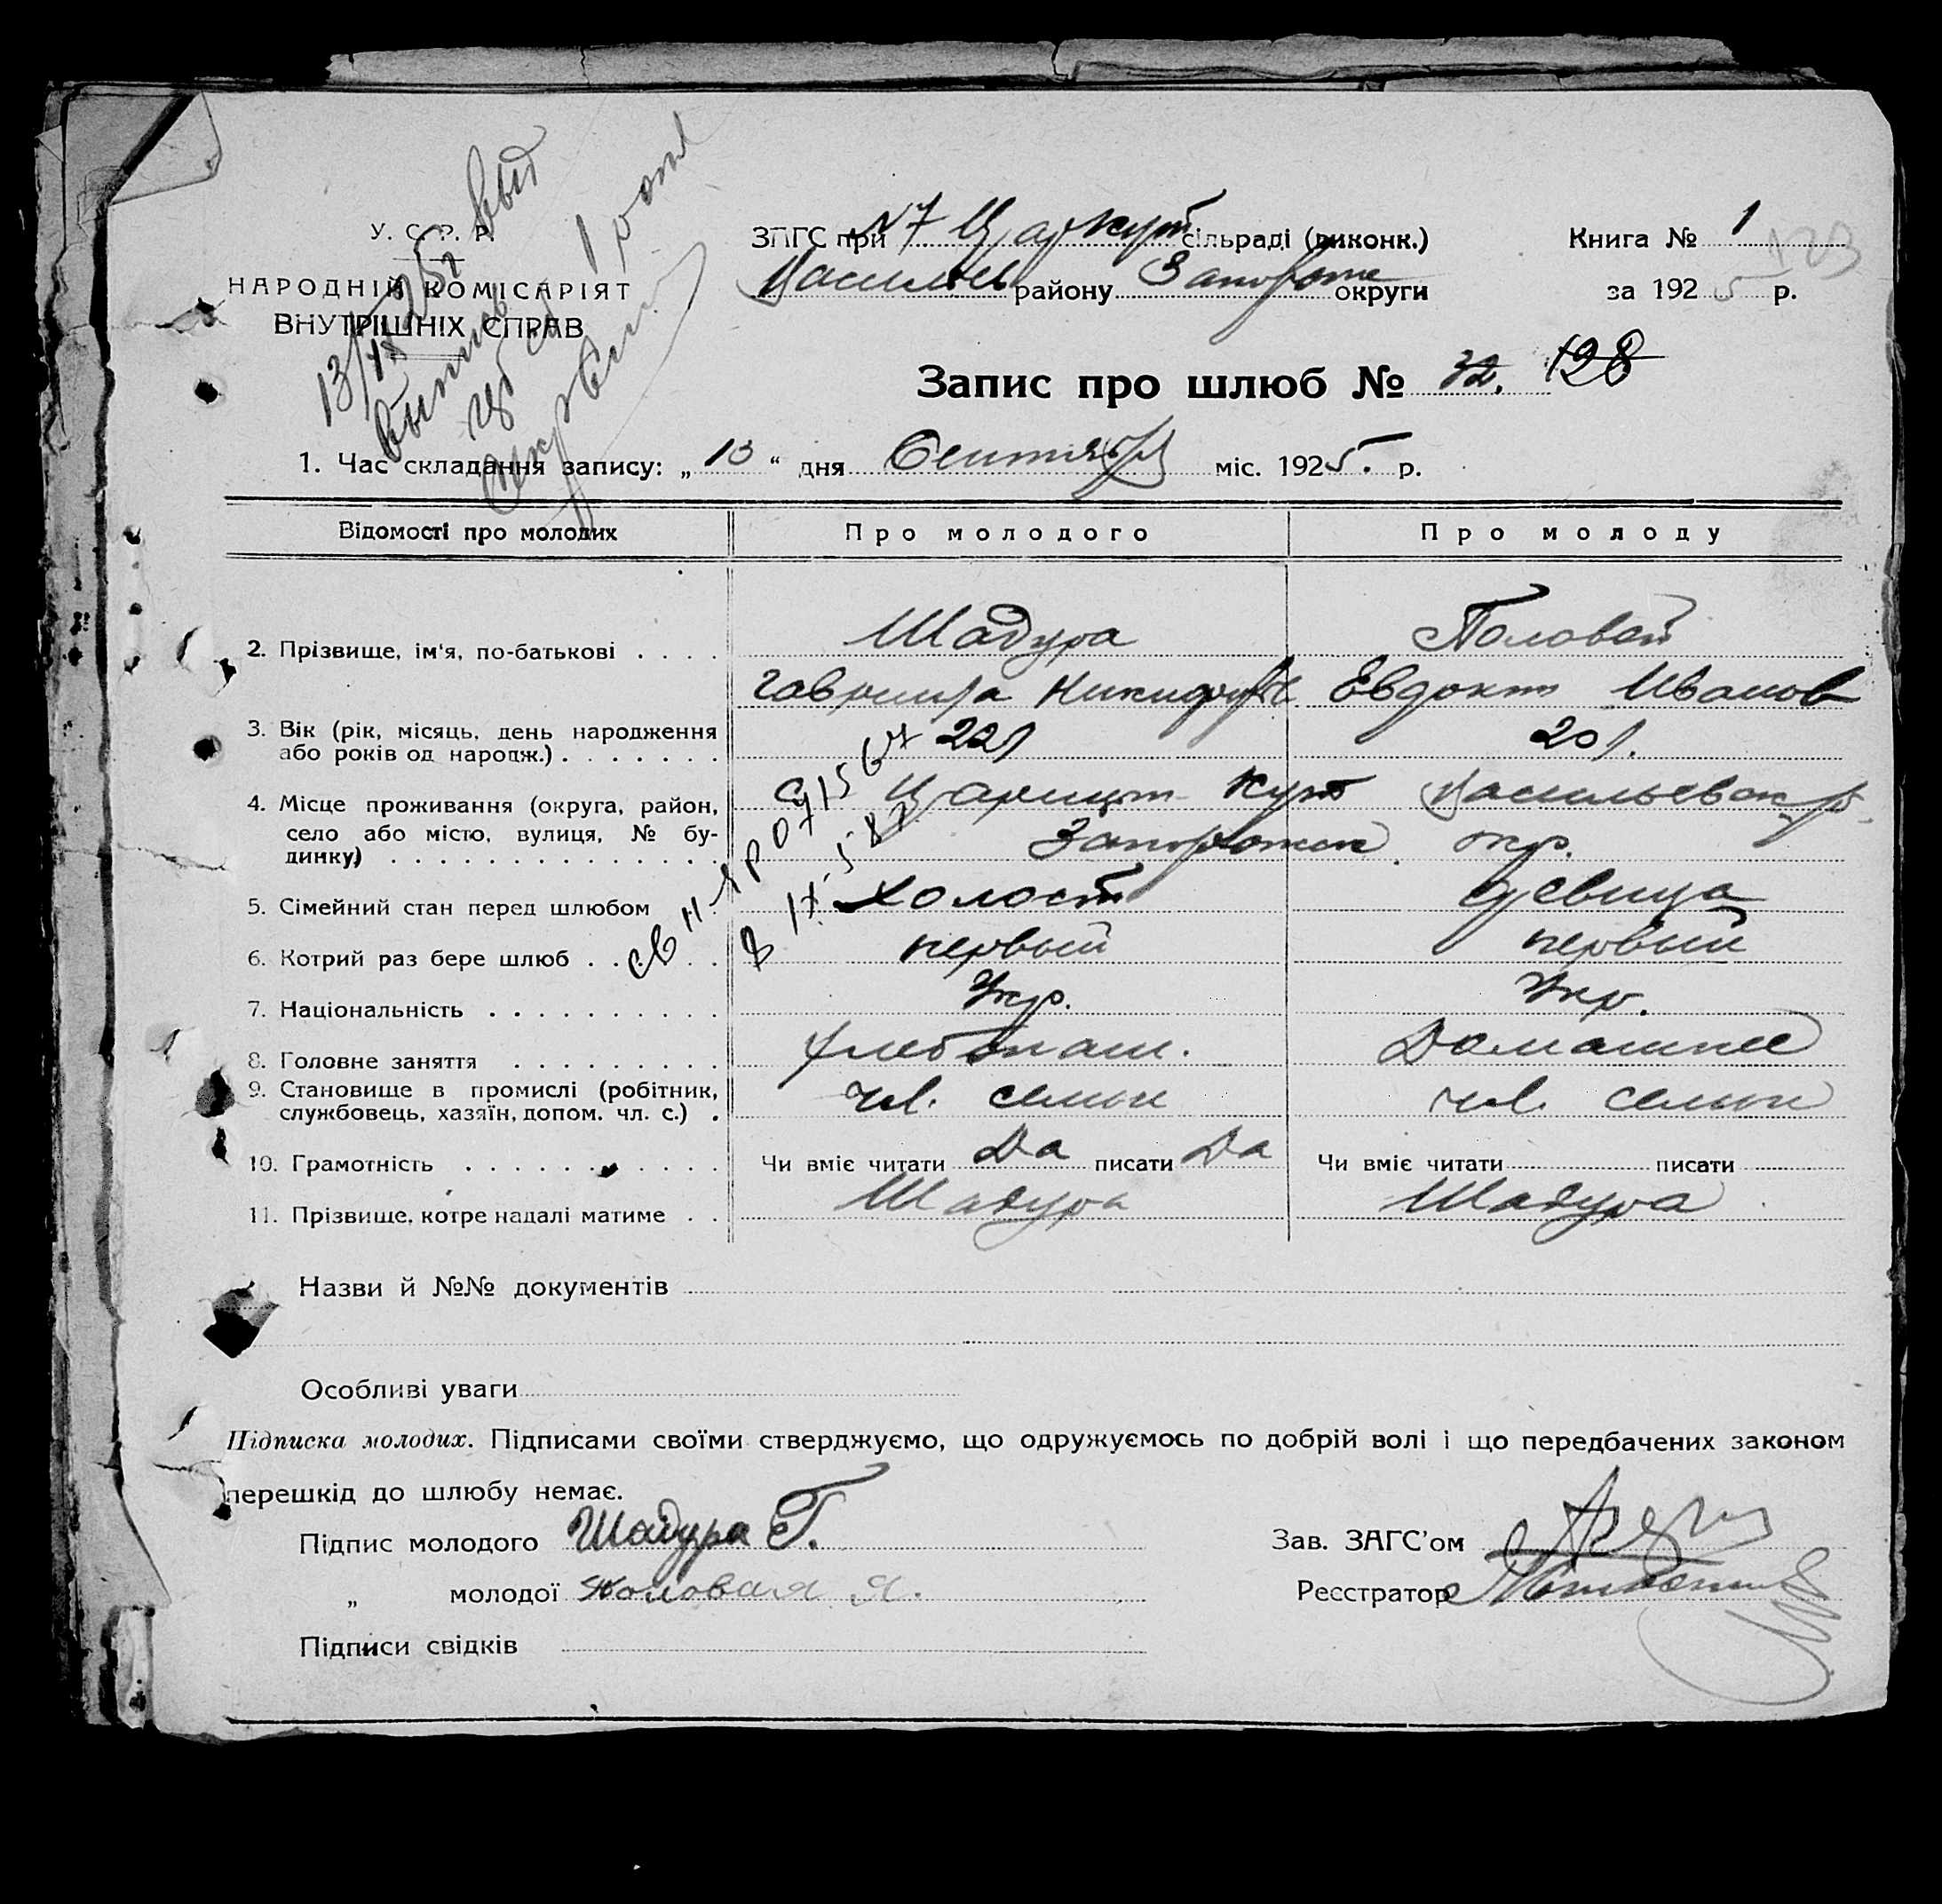 У. С. Р. Р.
НАРОДНІЙ КОМІСАРІЯТ
ВНУТРІШНІХ СПРАВ
ЗАГС при №7 Царкут сільраді (виконк.)
Васильев району Запорож округи
Книга № 1
123
за 1925 р.
Запис про шлюб № 32. 128
1. Час складання запису: „13“ дня Сентября міс. 1925. р.
Відомості про молодих Про молодого Про молоду
2. Прізвище, ім'я, по-батькові . . . . Шадура Половой
Гаврила Никифор Евдокт Иванов
3. Вік (рік, місяць, день народження
або років од народж.) . . . . . . . 22 20
4. Місце проживання (округа, район, Царицын Кут Васильевск
село або місто, вулиця, № бу-
динку) . . . . . . . . . . . . . . Запорожск окр.
5. Сімейний стан перед шлюбом холост девица
6. Котрий раз бере шлюб . . . . . первый первый
7. Національність . . . . . . . . . . Укр. Укр.
8. Головне заняття . . . . . . . . . хлебопаш. Домашнее
9. Становище в промислі (робітник,
службовець, хазяїн, допом. чл. с.) . чл. семьи чл. семьи
10. Грамотність . . . . . . . . . . . Чи вміє читати Да писати Да Чи вміє читати писати
11. Прізвище, котре надалі матиме . . Шадура Шадура
Назви й №№ документів
Особливі уваги
Підписка молодих. Підписами своїми стверджуємо, що одружуємось по добрій волі і що передбачених законом
перешкід до шлюбу немає.
Підпис молодого Шадура Г.
„ молодої Половая Я.
Підписи свідків
Зав. ЗАГС'ом
Реєстратор